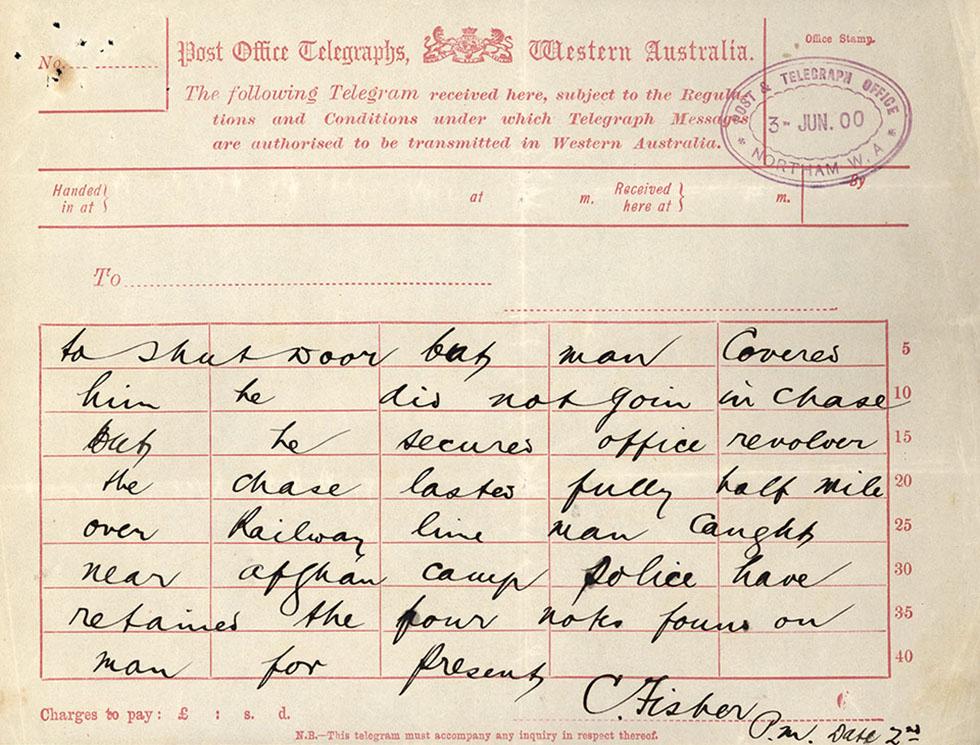 No.
Post Office Telegraphs, Western Australia.
Office Stamp.
The following Telegram received here, subject to the Regula-
tions and Conditions under which Telegraph Messages
are authorised to be transmitted in Western Australia.
POST & TELEGRAPH OFFICE
3- JUN. 00
* NORTHAM W. A *
Handed in at } at m. Received here at } m. By
To
to shut door but man Covered 5
him he did not join in chase 10
but he secured office revolver 15
the chase lasted fully half mile 20
over Railway line man Caught 25
near afghan camp police have 30
retained the four notes found on 35
man for present 40
C. Fisher
Charges to pay: £ : s. d.
P.M. Date 2nd
N.B.—This telegram must accompany any inquiry in respect thereof.